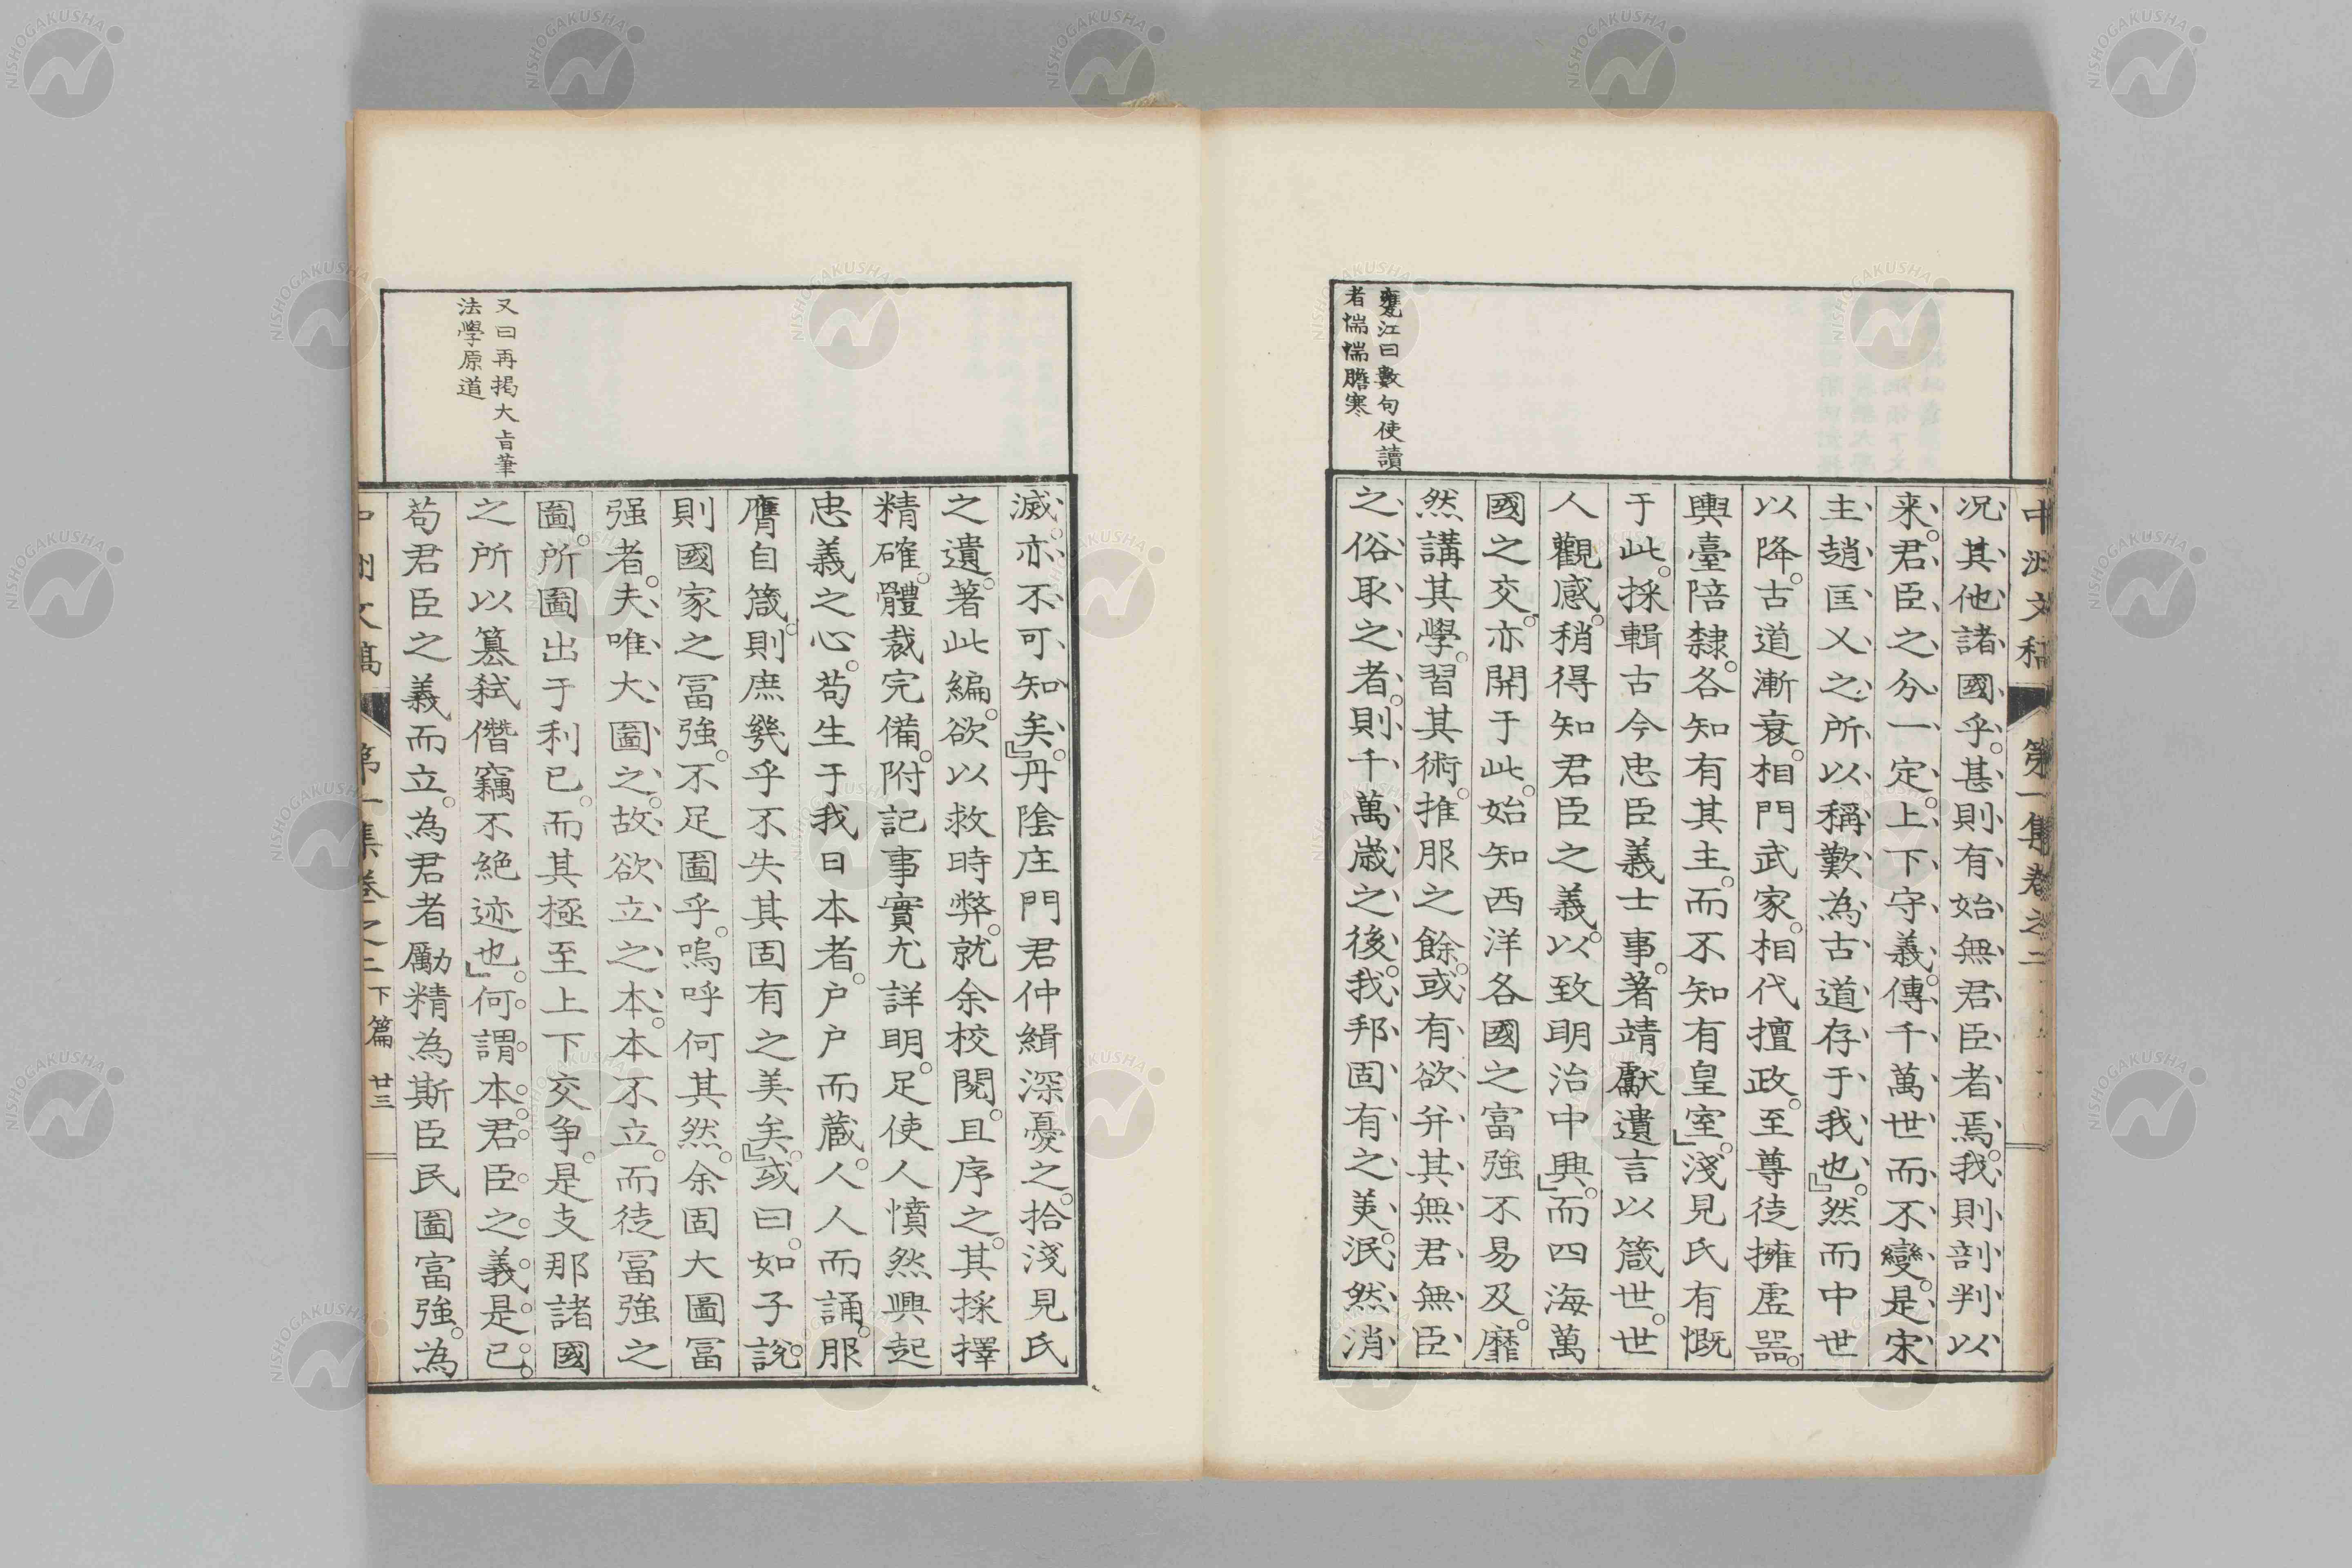 中洲文稿 第一集卷之二
况其他諸國乎。甚則有始無君臣者焉。我則剖判以
来。君臣之分一定。上下守義。傳千萬世而不變。是宋
主趙匡乂之所以稱歎為古道存于我也。』然而中世
以降。古道漸衰。相門武家。相代擅政。至尊徒擁虛器。
輿臺陪隸。各知有其主。而不知有皇室。』淺見氏有慨
于此。採輯古今忠臣義士事。著靖獻遺言以箴世。世
人觀感。稍得知君臣之義。以致明治中興。』而四海萬
國之交。亦開于此。始知西洋各國之富強不易及。靡
然講其學。習其術。推服之餘。或有欲并其無君無臣
之俗取之者。則千萬歳之後。我邦固有之美。泯然消
甕江曰數句使讀
者惴惴膽寒
滅。亦不可知矣。』丹陰庄門君仲緝深憂之。拾淺見氏
之遺。著此編。欲以救時弊。就余校閱。且序之。其採擇
精確。體裁完備。附記事實尤詳明。足使人憤然興起
忠義之心。苟生于我日本者。户户而藏。人人而誦。服
膺自箴。則庶幾乎不失其固有之美矣。』或曰。如子説。
則國家之冨強。不足圖乎。嗚呼何其然。余固大圖冨
强者。夫唯大圖之。故欲立之本。本不立。而徒冨強之
圖。所圖出于利已。而其極至上下交争。是支那諸國
之所以簒弑僭竊不絶迹也。』何謂本。君臣之義是已。
苟君臣之義而立。為君者勵精為斯臣民圖富強。為
又曰再掲大旨筆
法學原道
中洲文稿 第一集卷之二 下篇 廿三
NISHOGAKUSHA